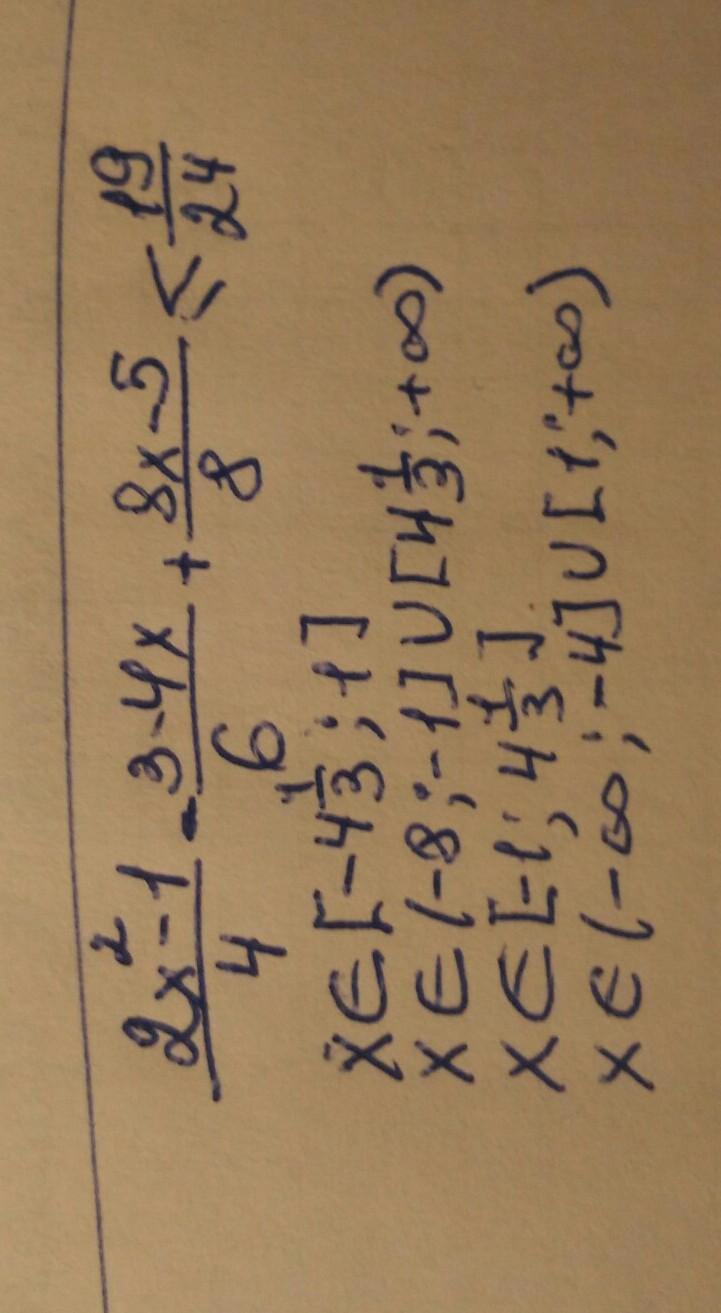 (2x² - 1)/4 - (3-4x)/6 + (8x-5)/8 ≤ 19/24
x ∈ [-4 1/3 ; 1]
x ∈ (-8 ; -1] ∪ [4 1/3 ; +∞)
x ∈ [-1 ; 4 1/3]
x ∈ (-∞ ; -4] ∪ [1 ; +∞)